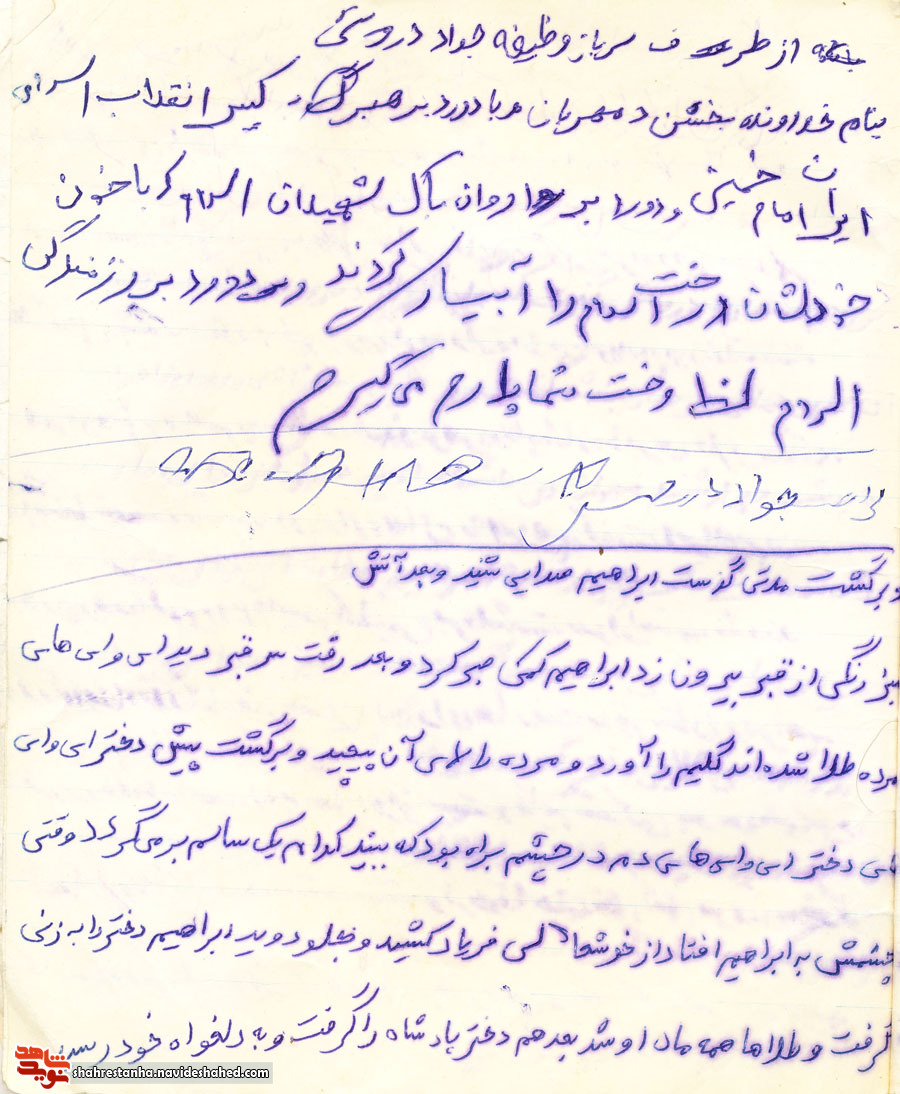 از طرف سرباز وظیفه جواد درویشی
بنام خداونده بخشن د مهربان و با دورد بر رهبر کبیر انقلاب اسلامی
ایران امام خمینی و دورد بر روان پاک شهیدان اسلام که با خون
خودشان درخت اسلام را آبیاری کردند و دورد بر رزمندگان
اسلام وخت شما را می گیرم
جواد درویشی
و برگشت مدتی گزست ابراهیم صدایی شنید و بعد آتش
سبز رنگی از قبر بیرون زد ابراهیم کمی صبر کرد و بعد رفت سر قبر دید ای وای های
مرده طلا شده اند گلیم را آورد و مرده را لای آن پیچید و برگشت پیش دختر ای وای
های دختر ای وای های دم در چشم براه بود که ببیند کدام یک سالم بر می گردد وقتی
چشمش به ابراهیم افتاد از خوشحالی فریاد کشید و بجلو دوید ابراهیم دختر را به زنی
گرفت و طلاها همه مال او شد بعد هم دختر پادشاه را گرفت و به دلخواه خود رسید
نوید شاهد
shahrestanha.navideshahed.com